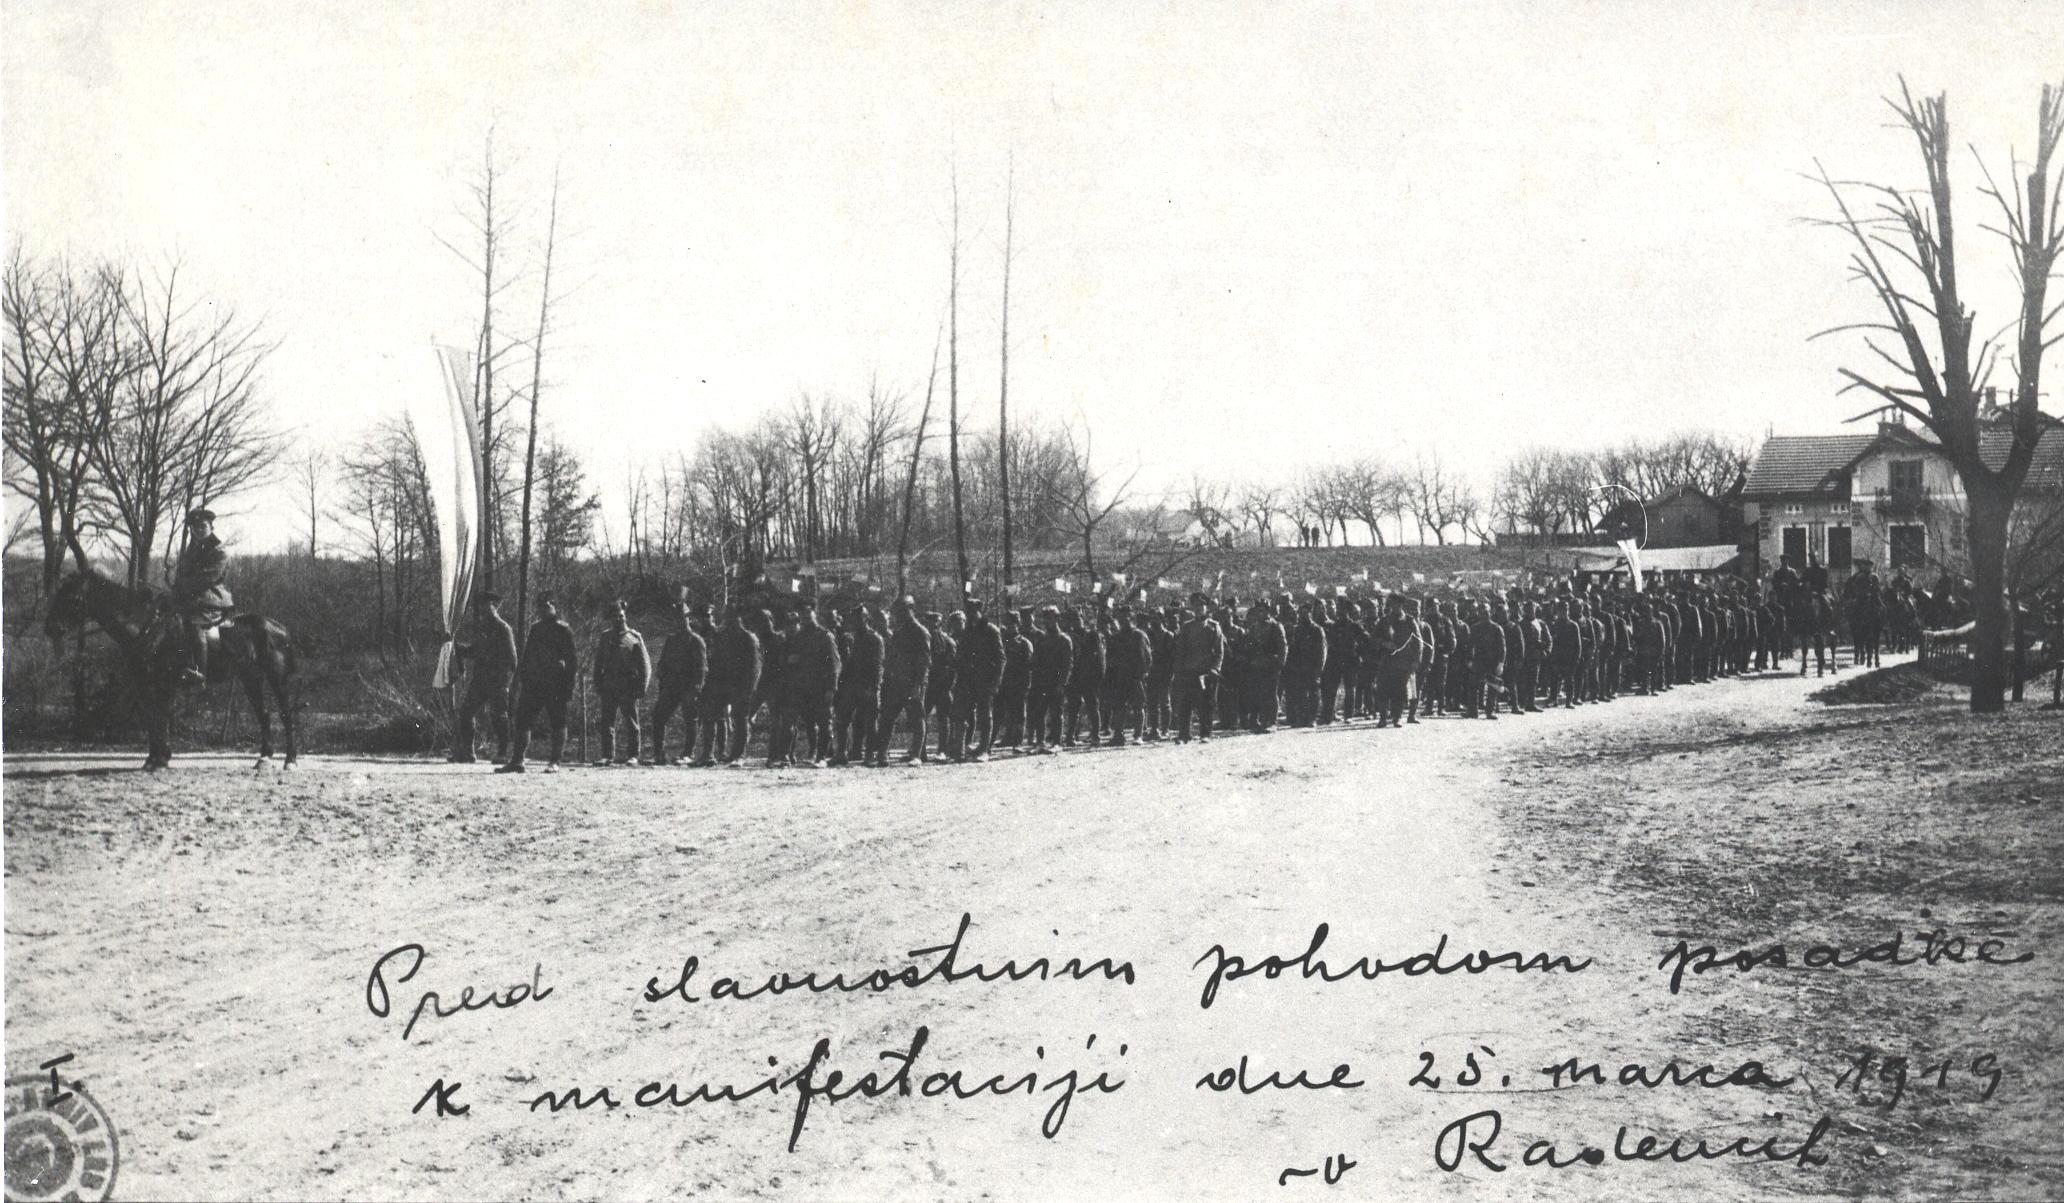 Pred slavnostnim pohodom posadke
k manifestaciji dne 25. marca 1919
v Radencih.
I.